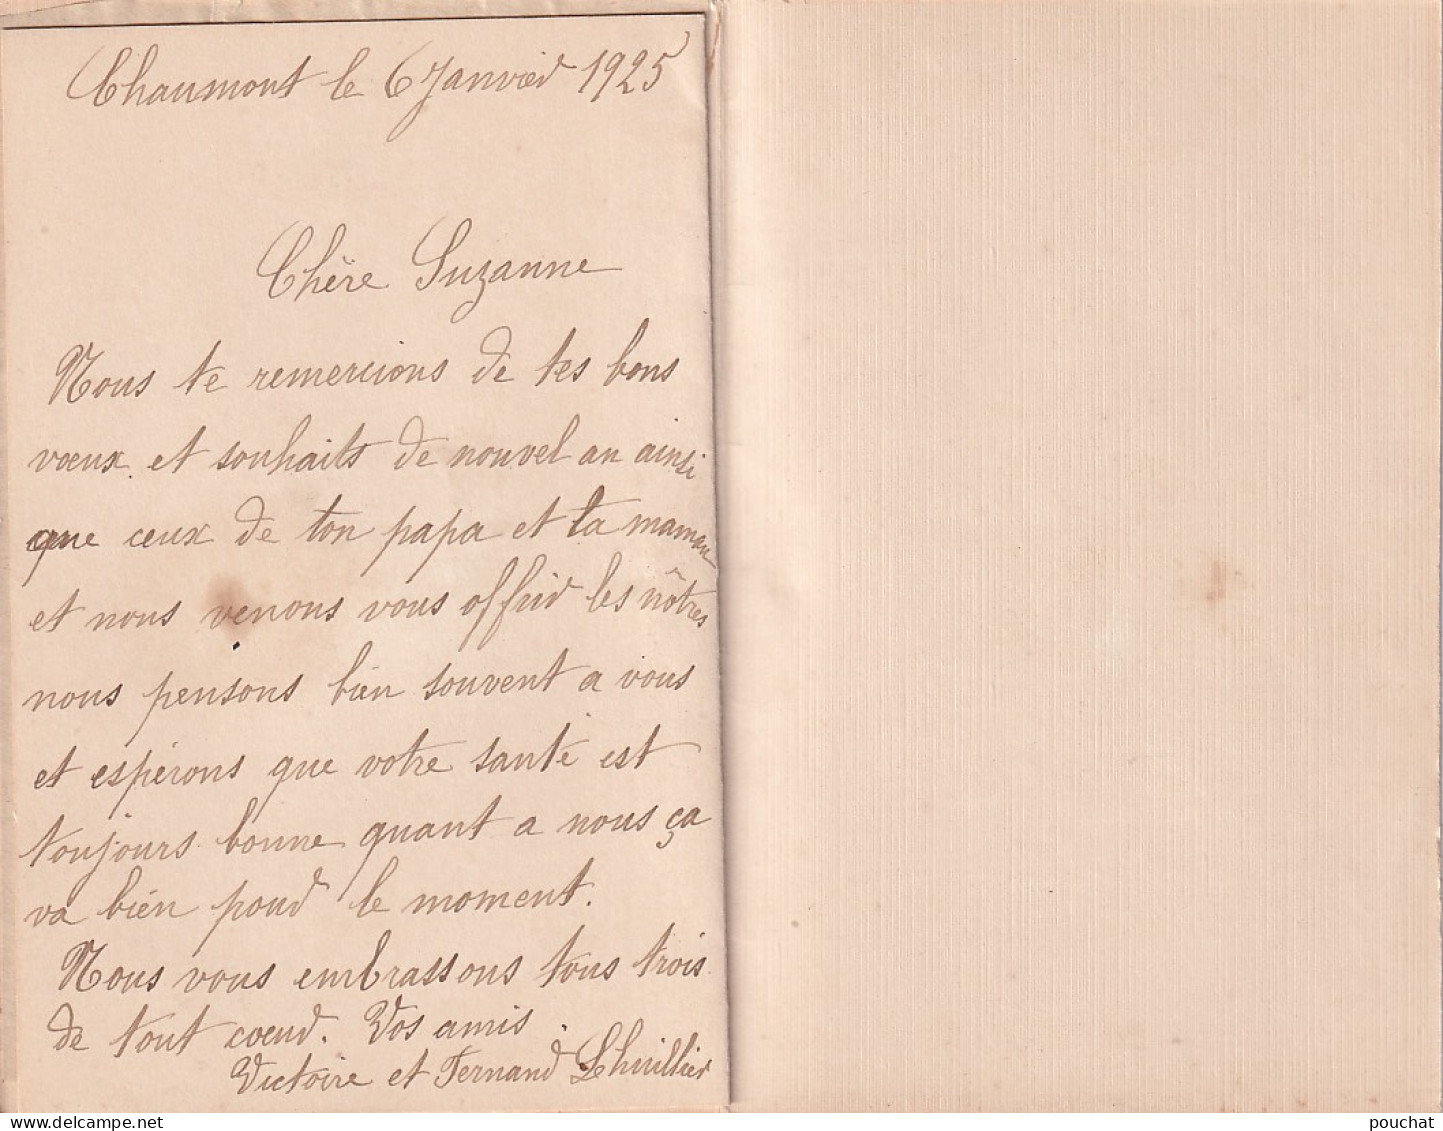 Chaumont le 6 Janvier 1925
Chère Suzanne
Nous te remercions de tes bons
vœux et souhaits de nouvel an ainsi
que ceux de ton papa et ta maman
et nous venons vous offrir les nôtres
nous pensons bien souvent a vous
et espérons que votre santé est
toujours bonne quant a nous ça
va bien pour le moment.
Nous vous embrassons tous trois
de tout cœur. Vos amis
Victoire et Fernand Lhuillier
www.delcampe.net
pouchat